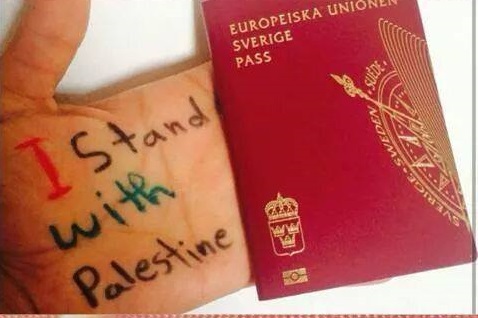 I Stand
with
Palestine
EUROPEISKA UNIONEN
SVERIGE
PASS
SUÈDE
SVERIGE·SWEDEN